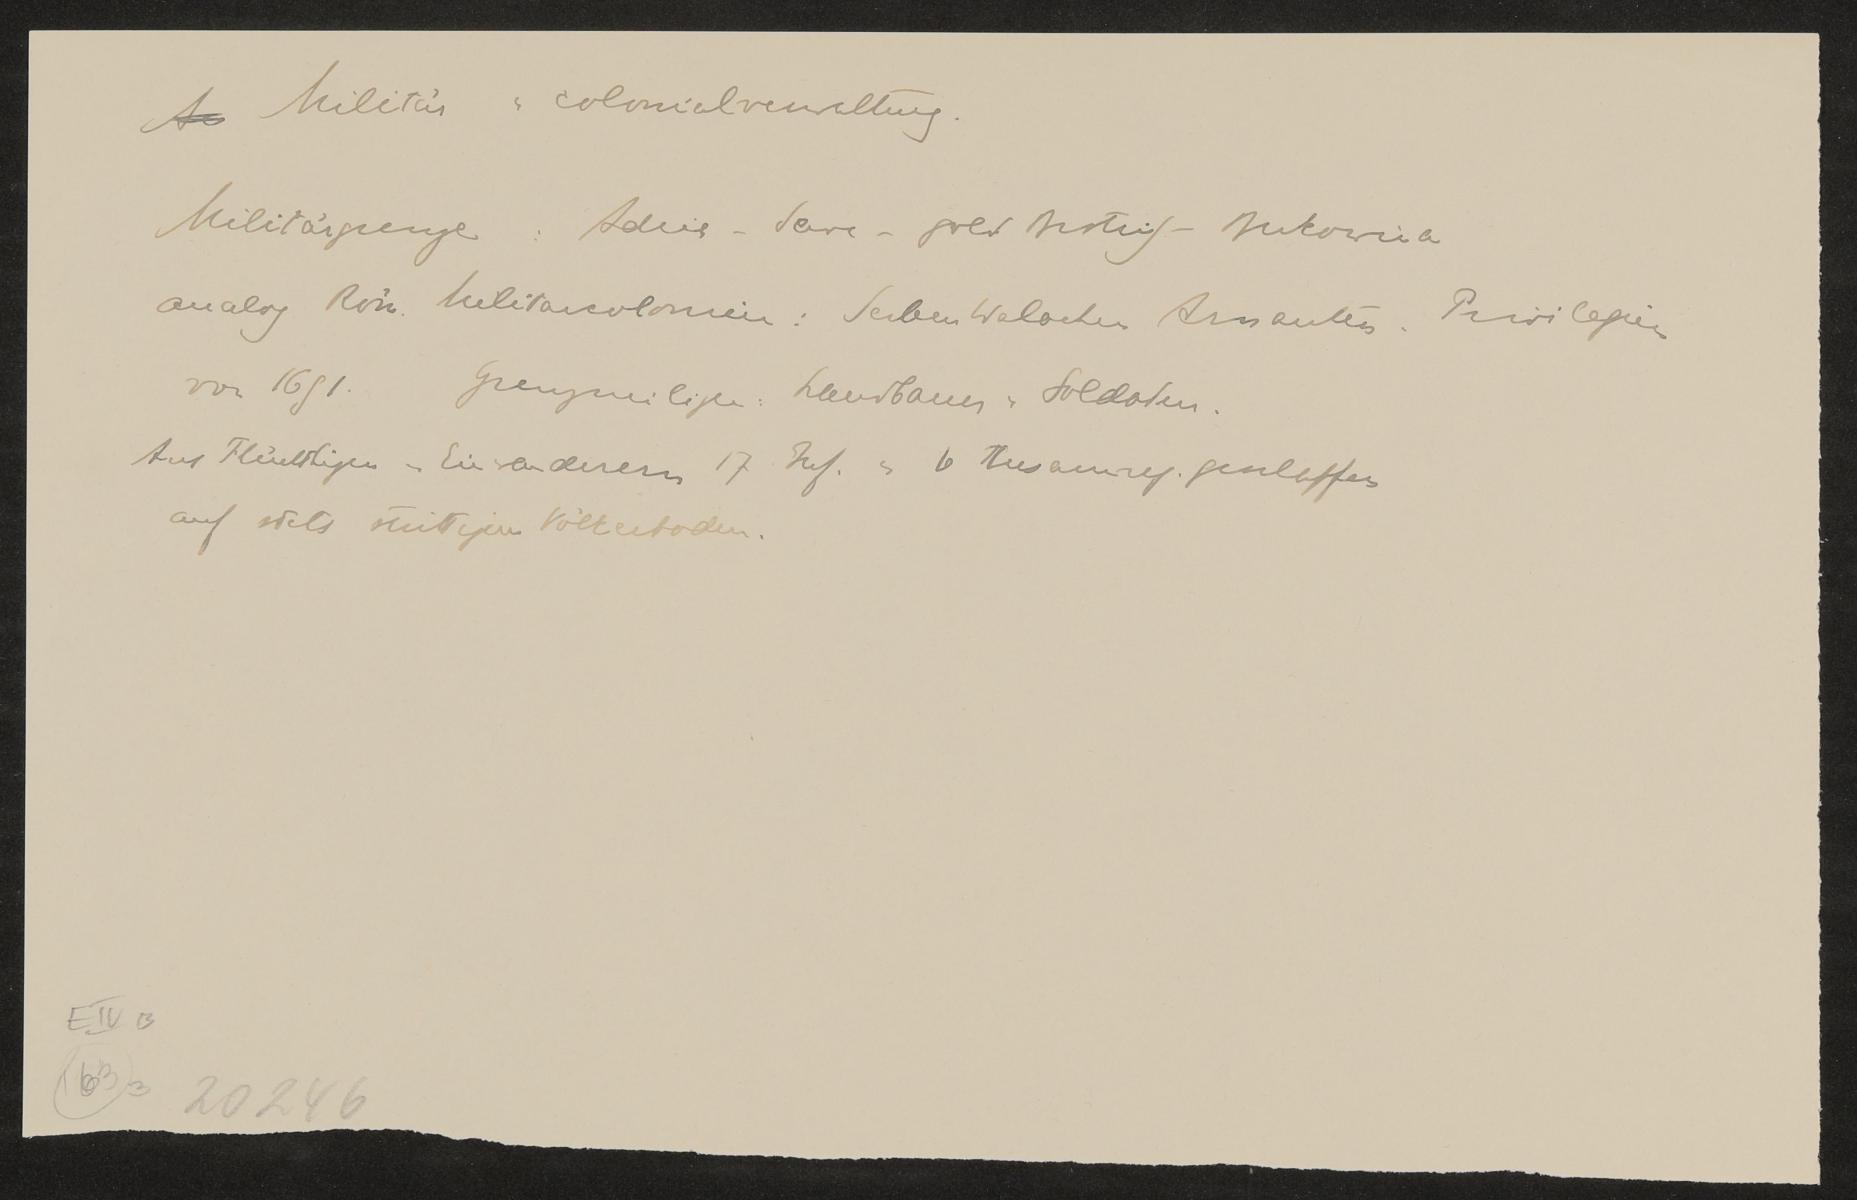 Militär u Colonialverwaltung.
Militärgrenze : Adria - Save - - Bukowina
analog Röm. Militärcolonien : Serben Walachen Arnauten. Privilegien
von 1691. Grenzmilizen : Landbauer u Soldaten.
Aus Flüchtigen u Einwanderern 17 Inf. u 6 geschaffen
auf stets strittigem Völkerboden.
E IV B
20246